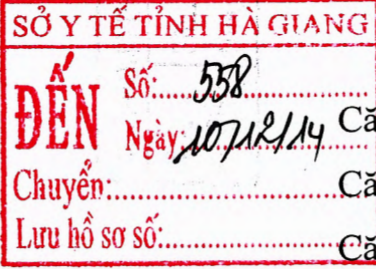 SỞ Y TẾ TỈNH HÀ GIANG
ĐẾN
Số: 558
Ngày: 10/12/14 Că
Chuyển: Că
Lưu hồ sơ số: Că